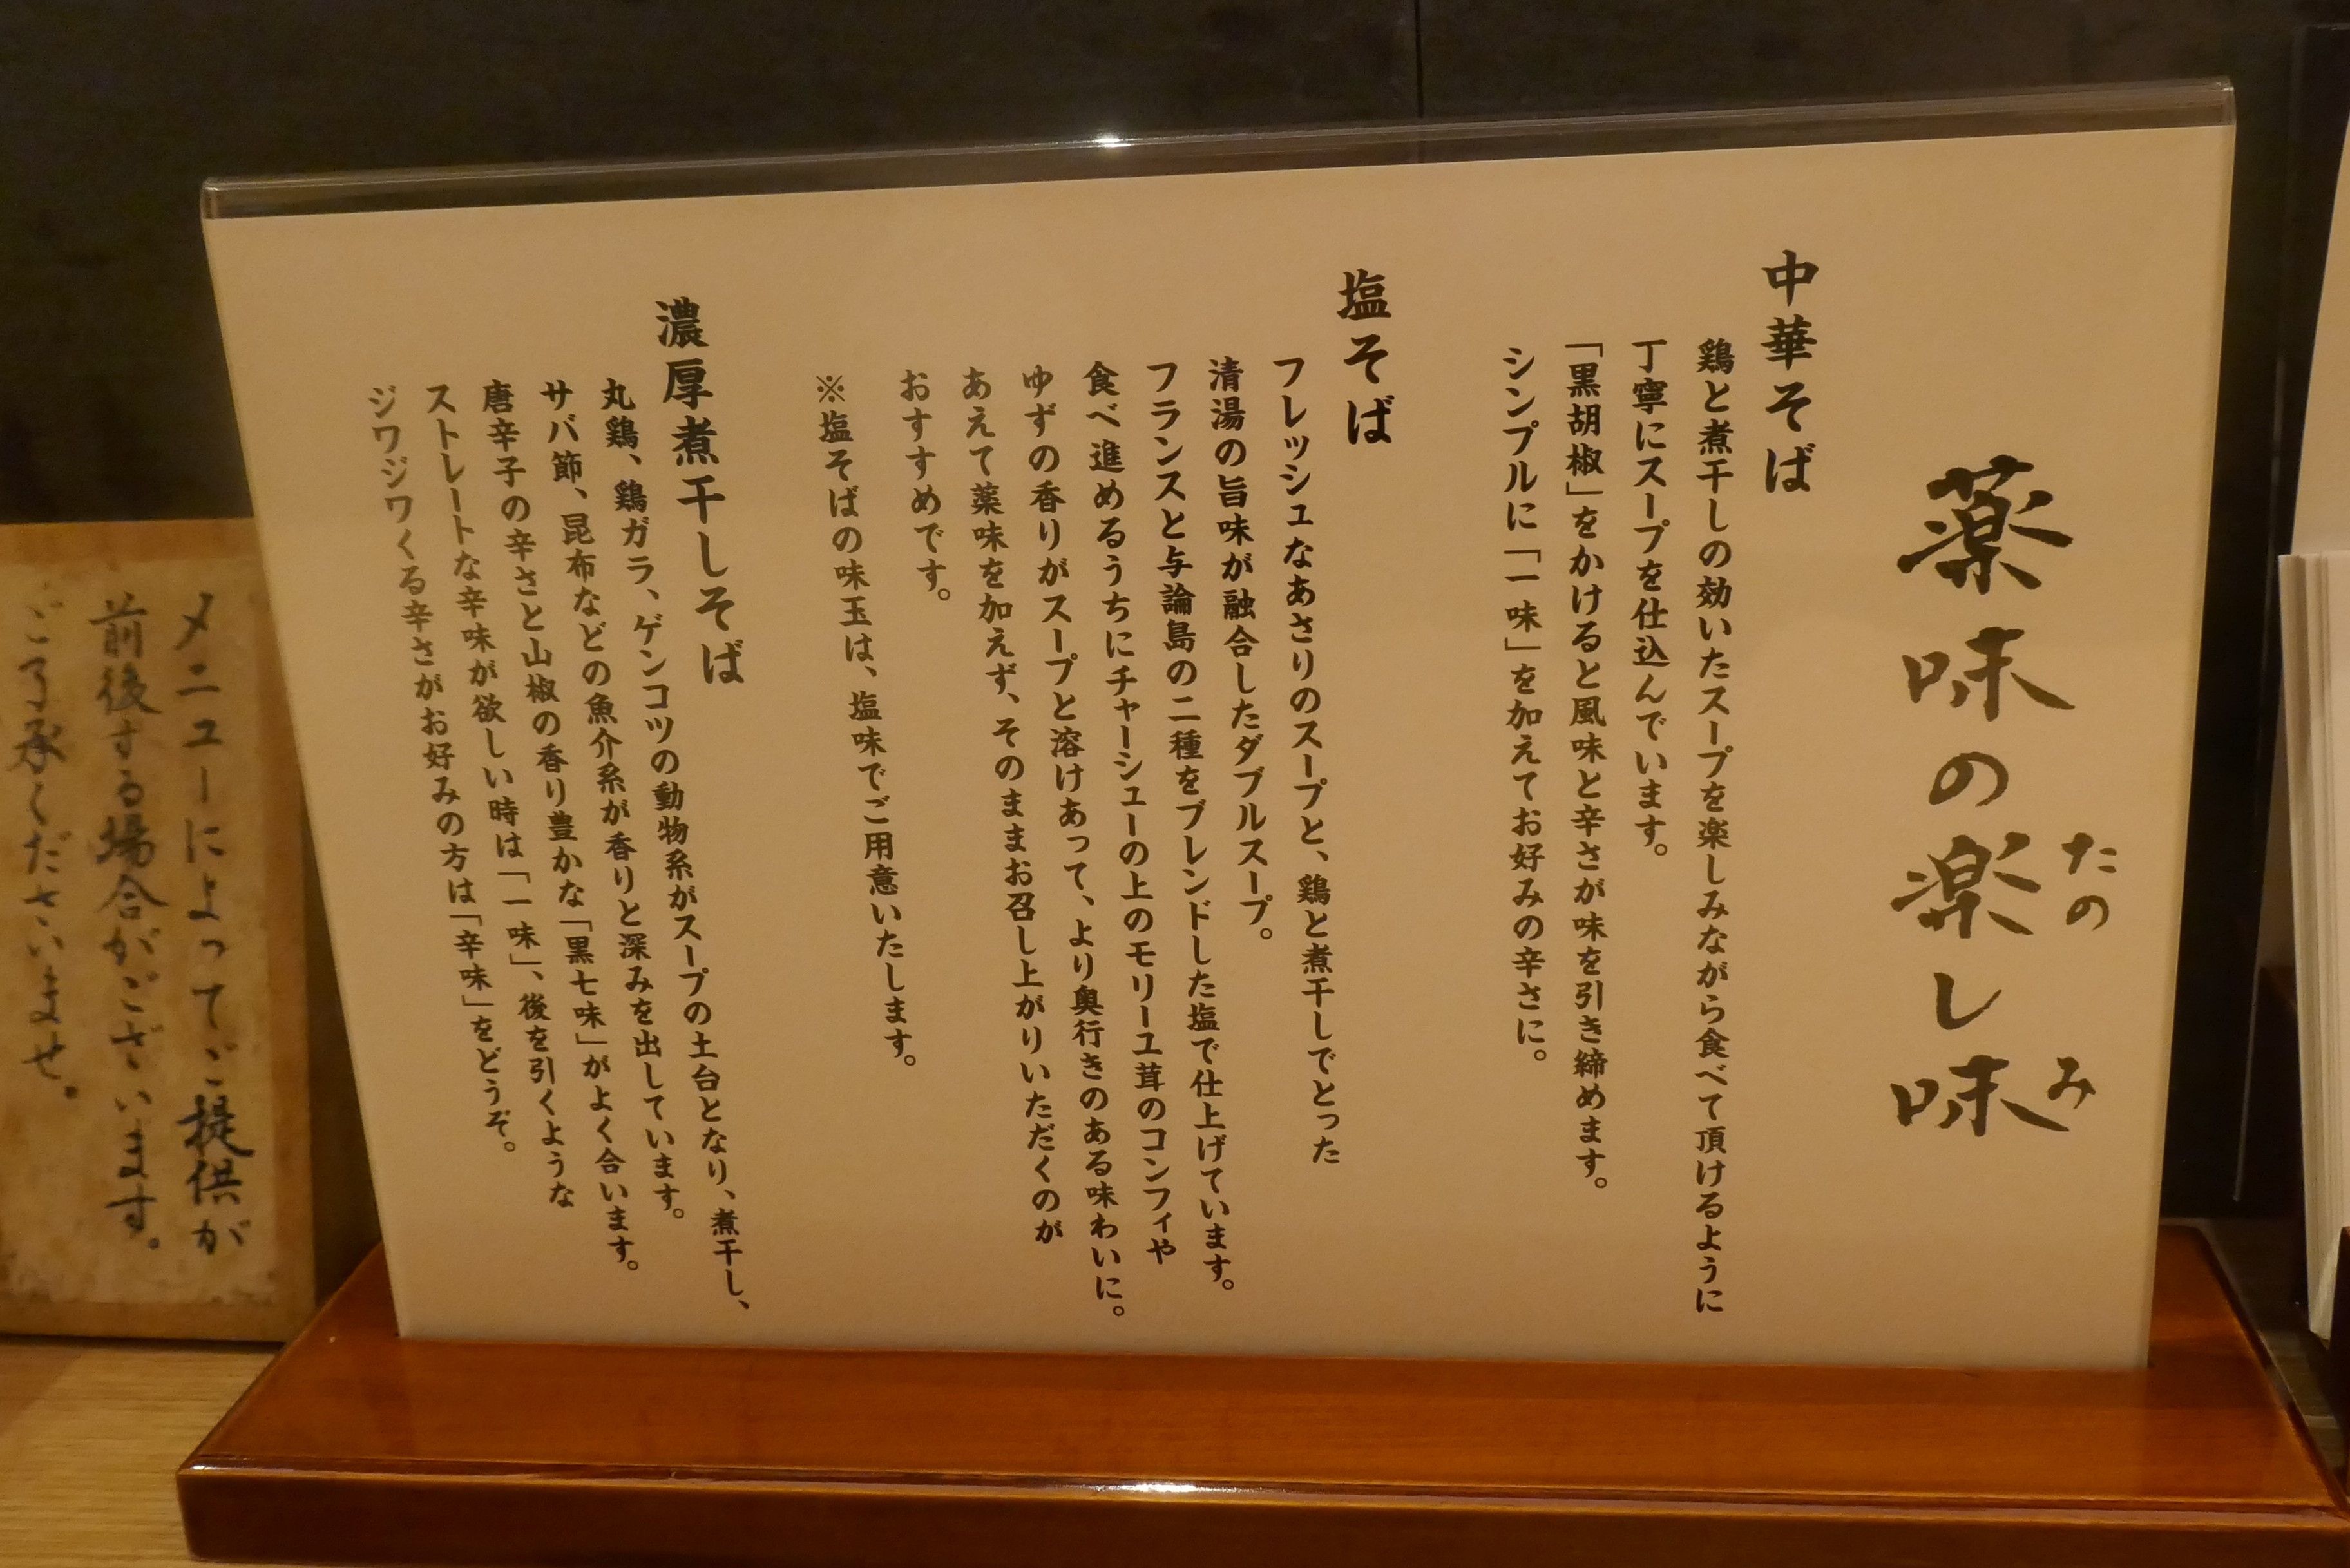 薬味の楽し味
たの
み
中華そば
鶏と煮干しの効いたスープを楽しみながら食べて頂けるように
丁寧にスープを仕込んでいます。
「黒胡椒」をかけると風味と辛さが味を引き締めます。
シンプルに「一味」を加えてお好みの辛さに。
塩そば
フレッシュなあさりのスープと、鶏と煮干しでとった
清湯の旨味が融合したダブルスープ。
フランスと与論島の二種をブレンドした塩で仕上げています。
食べ進めるうちにチャーシューの上のモリーユ茸のコンフィや
ゆずの香りがスープと溶けあって、より奥行きのある味わいに。
あえて薬味を加えず、そのままお召し上がりいただくのが
おすすめです。
※塩そばの味玉は、塩味でご用意いたします。
濃厚煮干しそば
丸鶏、鶏ガラ、ゲンコツの動物系がスープの土台となり、煮干し、
サバ節、昆布などの魚介系が香りと深みを出しています。
唐辛子の辛さと山椒の香り豊かな「黒七味」がよく合います。
ストレートな辛味が欲しい時は「一味」、後を引くような
ジワジワくる辛さがお好みの方は「辛味」をどうぞ。
メニューによってご提供が
前後する場合がございます。
ご了承くださいませ。